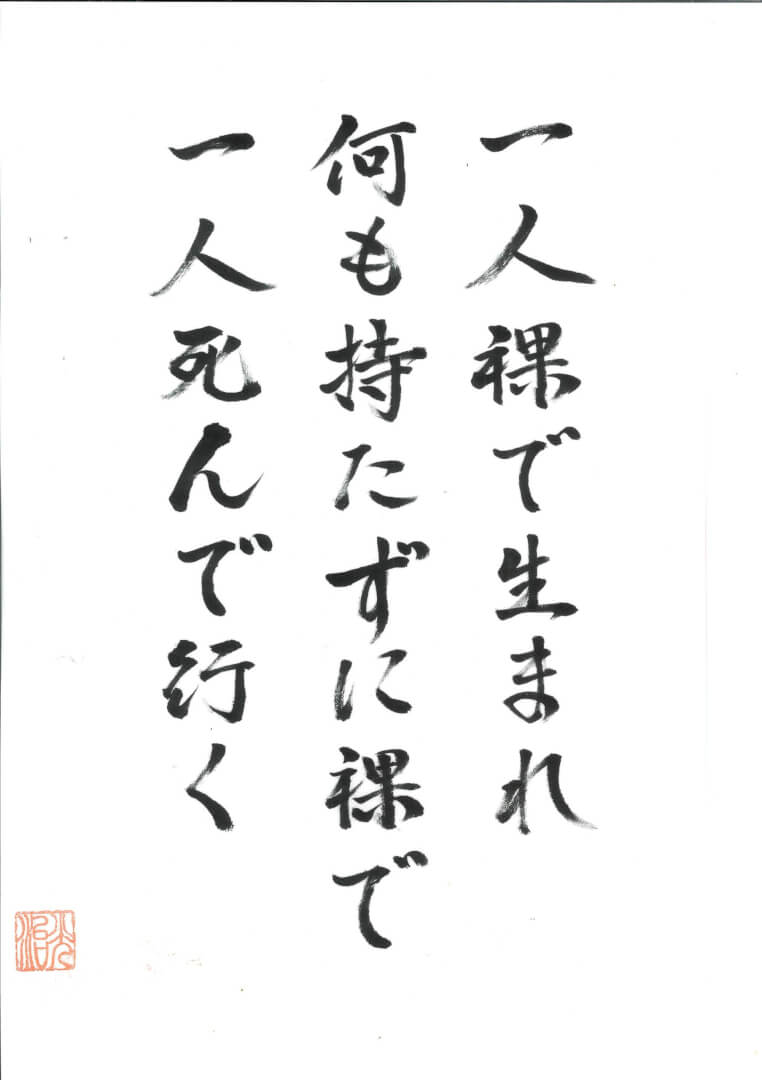 一人裸で生まれ
何も持たずに裸で
一人死んで行く